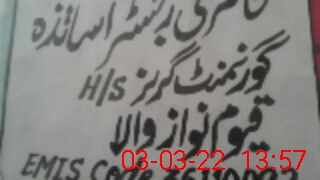 حاضری رجسٹر اساتذہ
گورنمنٹ گرلز H/S
قیوم نواز والا
EMIS Code
03-03-22 13:57